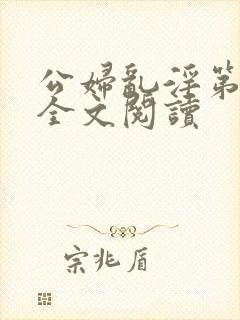 公婦亂淫第
全文閱讀
宗兆盾